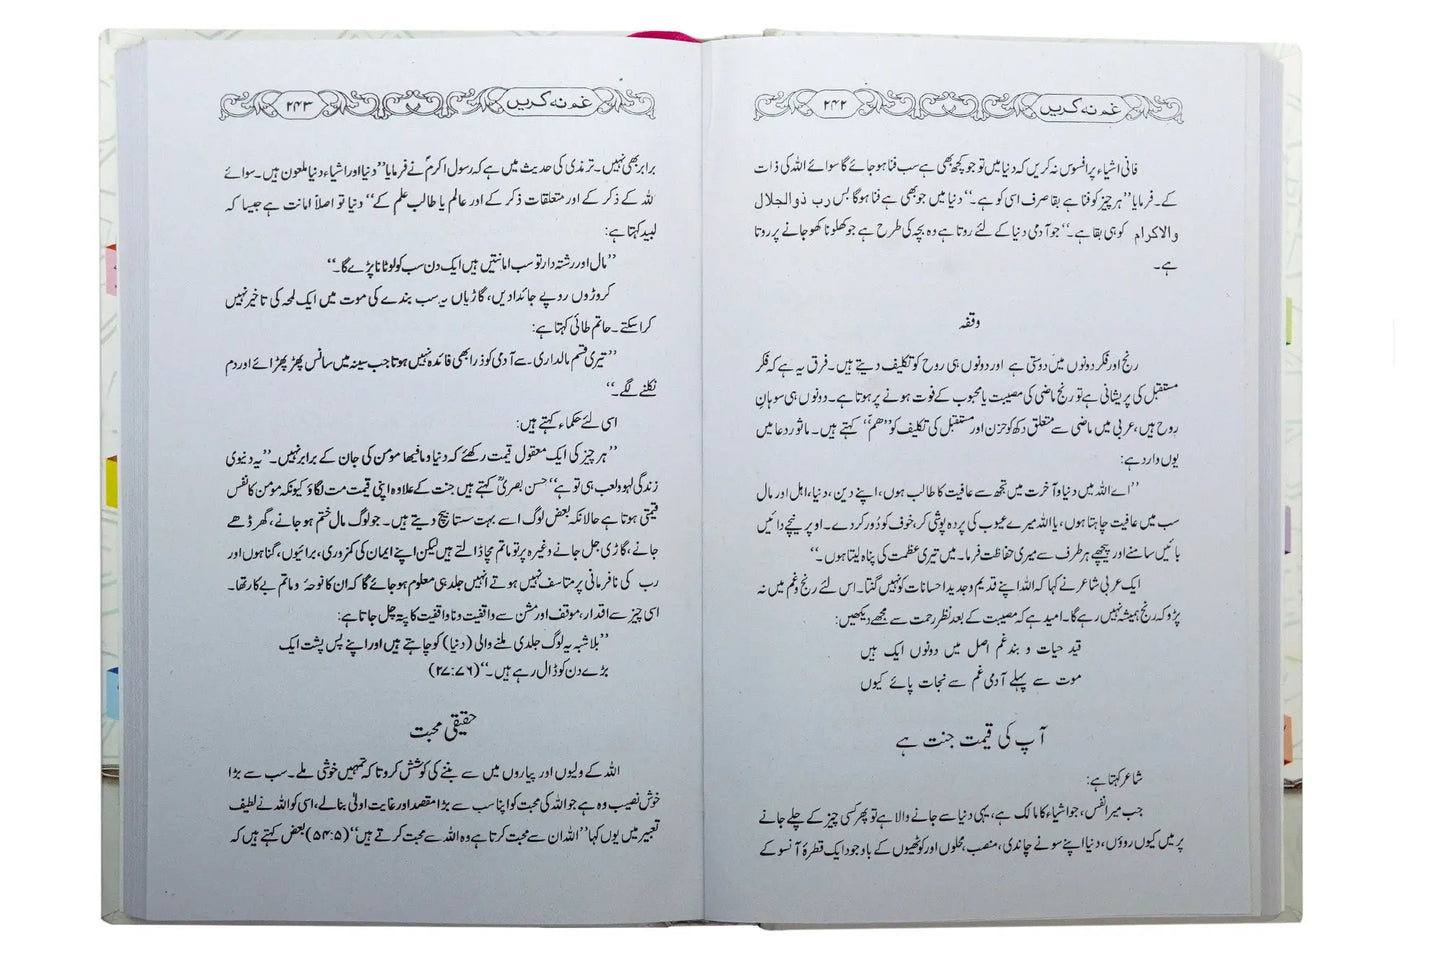 غم نہ کریں ۲۴۲
فانی اشیاء پر افسوس نہ کریں کہ دنیا میں تو جو کچھ بھی ہے سب فنا ہو جائے گا سوائے اللہ کی ذات
کے۔ فرمایا ’’ہر چیز کو فنا ہے بقا صرف اسی کو ہے۔‘‘ دنیا میں جو بھی ہے فنا ہوگا بس رب ذوالجلال
والاکرام کو ہی بقا ہے۔‘‘ جو آدمی دنیا کے لئے روتا ہے وہ بچہ کی طرح ہے جو کھلونا کھو جانے پر روتا
ہے۔
وقفہ
رنج اور فکر دونوں میں دوستی ہے اور دونوں ہی روح کو تکلیف دیتے ہیں۔ فرق یہ ہے کہ فکر
مستقبل کی پریشانی ہے تو رنج ماضی کی مصیبت یا محبوب کے فوت ہونے پر ہوتا ہے۔ دونوں ہی سوہانِ
روح ہیں، عربی میں ماضی سے متعلق دکھ کو حزن اور مستقبل کی تکلیف کو ’’ھمّ‘‘ کہتے ہیں۔ ماثور دعا میں
یوں وارد ہے:
’’اے اللہ میں دنیا و آخرت میں تجھ سے عافیت کا طالب ہوں، اپنے دین، دنیا، اہل اور مال
سب میں عافیت چاہتا ہوں، یا اللہ میرے عیوب کی پردہ پوشی کر، خوف کو دُور کر دے۔ اوپر نیچے دائیں
بائیں سامنے اور پیچھے ہر طرف سے میری حفاظت فرما۔ میں تیری عظمت کی پناہ لیتا ہوں۔‘‘
ایک عربی شاعر نے کہا کہ اللہ اپنے قدیم و جدید احسانات کو نہیں گنتا۔ اس لئے رنج و غم میں نہ
پڑو کہ رنج ہمیشہ نہیں رہے گا۔ امید ہے کہ مصیبت کے بعد نظر رحمت سے مجھے دیکھیں:
قید حیات و بند غم اصل میں دونوں ایک ہیں
موت سے پہلے آدمی غم سے نجات پائے کیوں
آپ کی قیمت جنت ہے
شاعر کہتا ہے:
جب میرا نفس، جو اشیاء کا مالک ہے، یہی دنیا سے جانے والا ہے تو پھر کسی چیز کے چلے جانے
پر میں کیوں روؤں، دنیا اپنے سونے چاندی، منصب، محلوں اور کوٹھیوں کے باوجود ایک قطرۂ آنسو کے
غم نہ کریں ۲۴۳
برابر بھی نہیں۔ ترمذی کی حدیث میں ہے کہ رسول اکرمؐ نے فرمایا ’’دنیا اور اشیاء دنیا ملعون ہیں۔ سوائے
للہ کے ذکر کے اور متعلقات ذکر کے اور عالم یا طالب علم کے‘‘ دنیا تو اصلاً امانت ہے جیسا کہ
لبید کہتا ہے:
’’مال اور رشتہ دار تو سب امانتیں ہیں ایک دن سب کو لوٹانا پڑے گا۔‘‘
کروڑوں روپے جائدادیں، گاڑیاں یہ سب بندے کی موت میں ایک لمحہ کی تاخیر نہیں
کرا سکتے۔ حاتم طائی کہتا ہے:
’’تیری قسم مالداری۔ سے آدمی کو ذرا بھی فائدہ نہیں ہوتا جب سینہ میں سانس پھڑ پھڑائے اور دم
نکلنے لگے۔‘‘
اسی لئے حکماء کہتے ہیں:
’’ہر چیز کی ایک معقول قیمت رکھئے کہ دنیا و مافیھا مومن کی جان کے برابر نہیں۔‘‘ یہ دنیوی
زندگی لہو و لعب ہی تو ہے‘‘ حسن بصریؒ کہتے ہیں جنت کے علاوہ اپنی قیمت مت لگاؤ کیونکہ مومن کا نفس
قیمتی ہوتا ہے حالانکہ بعض لوگ اسے بہت سستا بیچ دیتے ہیں۔ جو لوگ مال ختم ہو جانے، گھر ڈھے
جانے، گاڑی جل جانے وغیرہ پر تو ماتم مچا ڈالتے ہیں لیکن اپنے ایمان کی کمزوری، برائیوں، گناہوں اور
رب کی نافرمانی پر متاسف نہیں ہوتے انہیں جلد ہی معلوم ہو جائے گا کہ ان کا نوحہ و ماتم بے کار تھا۔
اسی چیز سے اقدار، موقف اور مشن سے واقفیت و ناواقفیت کا پتہ چل جاتا ہے:
’’بلاشبہ یہ لوگ جلدی ملنے والی (دنیا) کو چاہتے ہیں اور اپنے پس پشت ایک
بڑے دن کو ڈال رہے ہیں۔‘‘ (۲۷:۷۶)
حقیقی محبت
اللہ کے ولیوں اور پیاروں میں سے بننے کی کوشش کرو تا کہ تمہیں خوشی ملے۔ سب سے بڑا
خوش نصیب وہ ہے جو اللہ کی محبت کو اپنا سب سے بڑا مقصد اور غایت اولیٰ بنا لے، اسی کو اللہ نے لطیف
تعبیر میں یوں کہا ’’اللہ ان سے محبت کرتا ہے وہ اللہ سے محبت کرتے ہیں‘‘ (۵۴:۵) بعض کہتے ہیں کہ